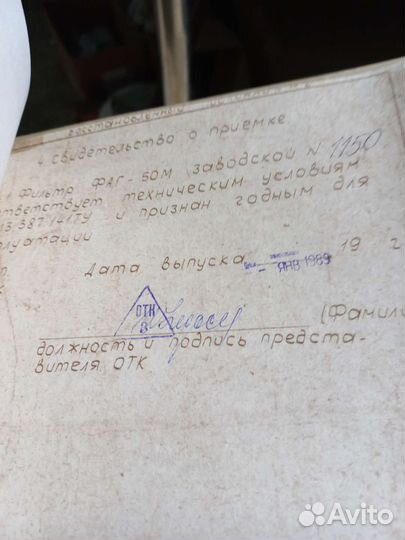 4. Свидетельство о приемке
Фильтр ФАГ-50М заводской N 1150
ответствует техническим условиям
587.141ТУ и признан годным для
плуатации
Дата выпуска ЯНВ 1989 19 г
ОТК
В
(Фамили
должность и подпись предста-
вителя ОТК
Avito